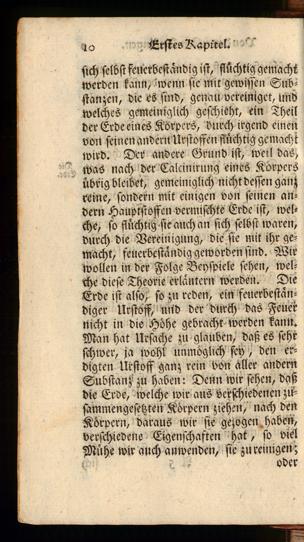 10 Erstes Kapitel.
sich selbst feuerbeständig ist, flüchtig gemacht
werden kann, wenn sie mit gewissen Sub-
stanzen, die es sind, genau vereiniget, und
welches gemeiniglich geschieht, ein Theil
der Erde eines Körpers, durch irgend einen
von seinen andern Urstoffen flüchtig gemacht
wird. Der andere Grund ist, weil das,
was nach der Calcinirung eines Körpers
übrig bleibet, gemeiniglich nicht dessen ganz
reine, sondern mit einigen von seinen an-
dern Hauptstoffen vermischte Erde ist, wel-
che, so flüchtig sie auch an sich selbst waren,
durch die Vereinigung, die sie mit ihr ge-
macht, feuerbeständig geworden sind. Wir
wollen in der Folge Beyspiele sehen, wel-
che diese Theorie erläutern werden. Die
Erde ist also, so zu reden, ein feuerbestän-
diger Urstoff, und der durch das Feuer
nicht in die Höhe gebracht werden kann.
Man hat Ursache zu glauben, daß es sehr
schwer, ja wohl unmöglich sey, den er-
digten Urstoff ganz rein von aller andern
Substanz zu haben: Denn wir sehen, daß
die Erde, welche wir aus verschiedenen zu-
sammengesetzten Körpern ziehen, nach den
Körpern, daraus wir sie gezogen haben,
verschiedene Eigenschaften hat, so viel
Mühe wir auch anwenden, sie zu reinigen;
oder